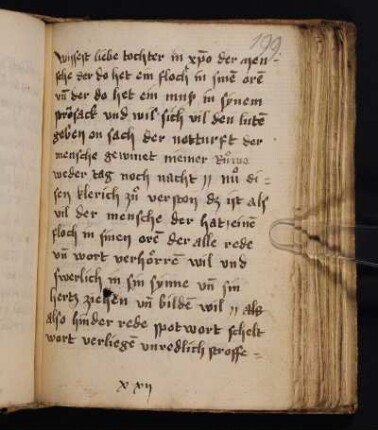 199.
wissest liebe tochter in xpo der men-
sche der do het ein floch in sinē orē
vn̄ der do het ein muß in synem
strosack vnd wil sich vil den lutē
geben on sach der notturft der
mensche gewinet niemer
weder tag noch nacht // nů di=
sen klerich zů verston dz ist als
vil der mensche der hat einē
floch in sinen orē der alle rede
vn̄ wort verhörrē wil vnd
swerlich in sin synne vn̄ sin
hertz ziehen vn̄ bildē wil // als
also hinder rede spotwort schelt
wort verliegē vnredlich stroffe=
x xij